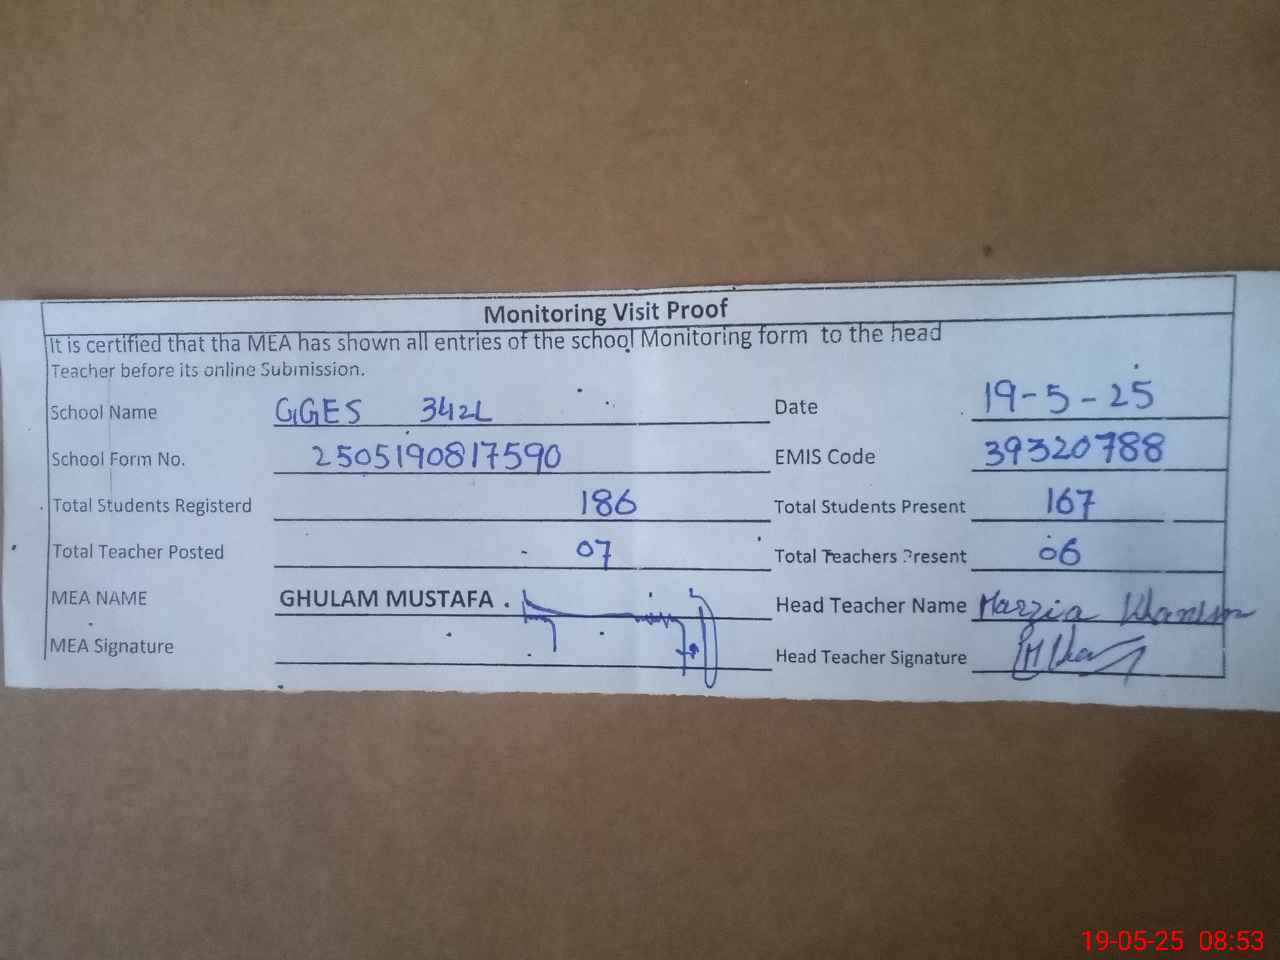 Monitoring Visit Proof
It is certified that tha MEA has shown all entries of the school Monitoring form to the head
Teacher before its online Submission.
School Name GGES 342L Date 19-5-25
School Form No. 2505190817590 EMIS Code 39320788
Total Students Registerd 186 Total Students Present 167
Total Teacher Posted 07 Total Teachers Present 06
MEA NAME GHULAM MUSTAFA . Head Teacher Name Marzia Khanum
MEA Signature Head Teacher Signature
19-05-25 08:53